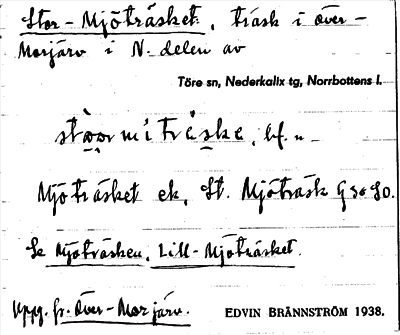 Stor-Mjöträsket, träsk i Över-
Morjärv i N. delen av
Töre sn, Nederkalix tg, Norrbottens l.
bf. n
Mjöträsket ek, St. Mjöträsk G 36 SO.
Se Mjöträsken, Lill-Mjöträsket.
Uppg. fr. Över-Morjärv. EDVIN BRÄNNSTRÖM 1938.